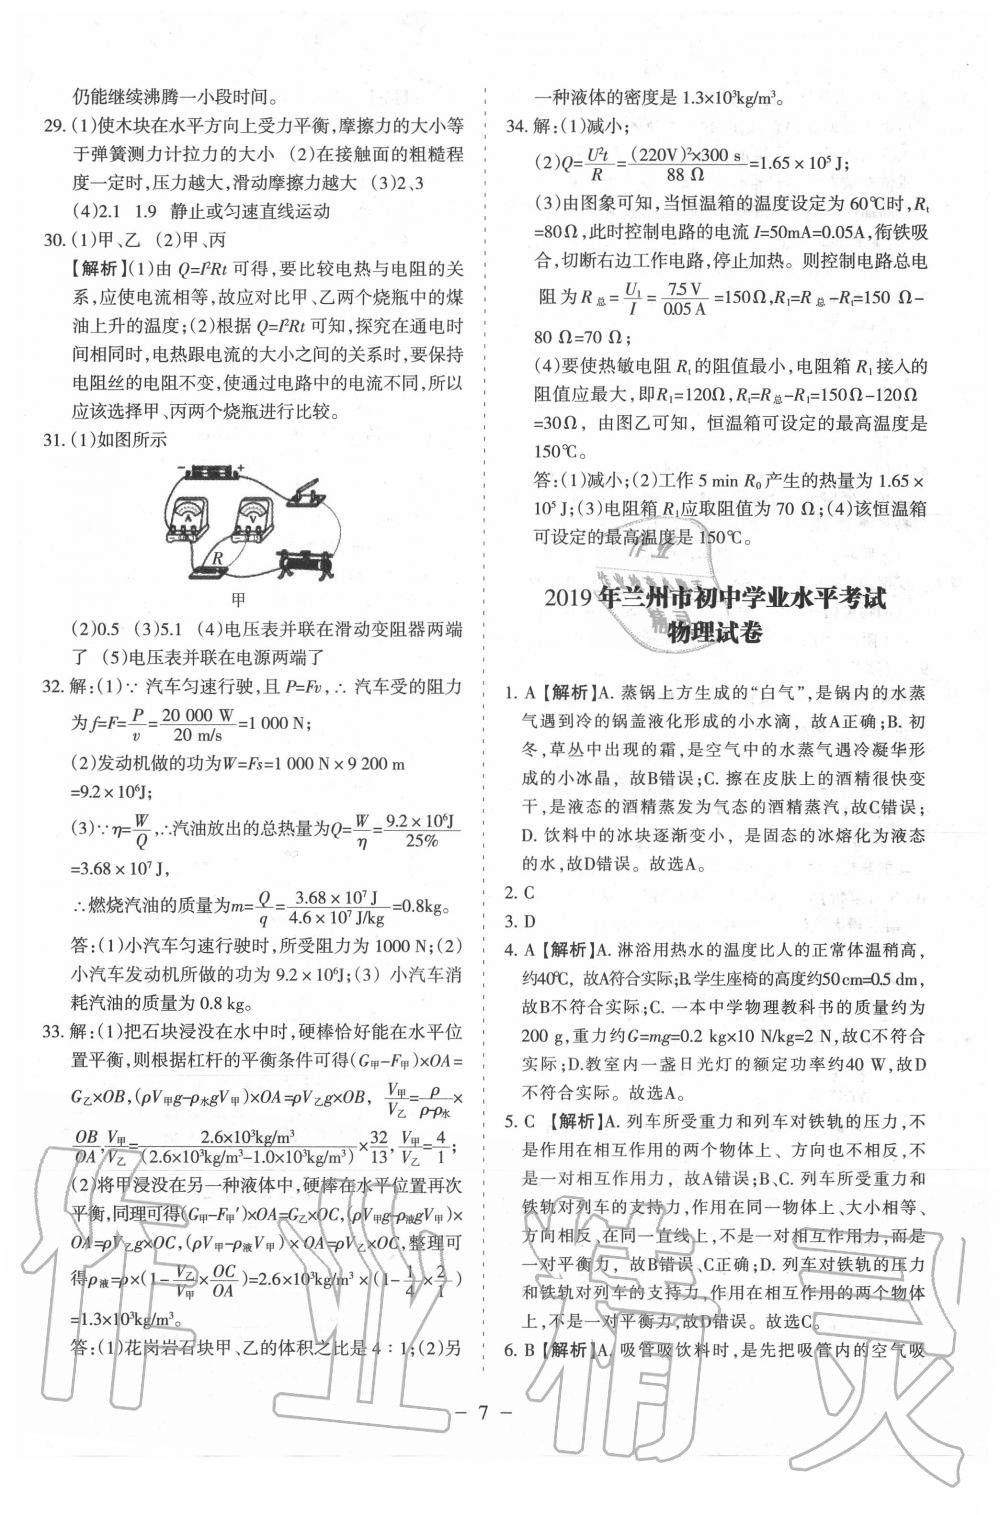 仍能继续沸腾一小段时间。
29. (1)使木块在水平方向上受力平衡,摩擦力的大小等
于弹簧测力计拉力的大小 (2)在接触面的粗糙程
度一定时,压力越大,滑动摩擦力越大 (3)2、3
(4)2.1 1.9 静止或匀速直线运动
30. (1)甲、乙 (2)甲、丙
【解析】(1)由 Q=I²Rt 可得,要比较电热与电阻的关
系,应使电流相等,故应对比甲、乙两个烧瓶中的煤
油上升的温度;(2)根据 Q=I²Rt 可知,探究在通电时
间相同时,电热跟电流的大小之间的关系时,要保持
电阻丝的电阻不变,使通过电路中的电流不同,所以
应该选择甲、丙两个烧瓶进行比较。
31. (1)如图所示
- +
A V
R
甲
(2)0.5 (3)5.1 (4)电压表并联在滑动变阻器两端
了 (5)电压表并联在电源两端了
32. 解:(1)∵ 汽车匀速行驶,且 P=Fv,∴ 汽车受的阻力
为f=F=P/v=20 000 W/20 m/s=1 000 N;
(2)发动机做的功为W=Fs=1 000 N×9 200 m
=9.2×10⁶J;
(3)∵η=W/Q,∴汽油放出的总热量为Q=W/η=9.2×10⁶J/25%
=3.68×10⁷ J,
∴燃烧汽油的质量为m=Q/q=3.68×10⁷ J/4.6×10⁷ J/kg=0.8kg。
答:(1)小汽车匀速行驶时,所受阻力为 1000 N;(2)
小汽车发动机所做的功为 9.2×10⁶J;(3) 小汽车消
耗汽油的质量为 0.8 kg。
33. 解:(1)把石块浸没在水中时,硬棒恰好能在水平位
置平衡,则根据杠杆的平衡条件可得(G甲-F甲)×OA=
G乙×OB,(ρV甲g-ρ水gV甲)×OA=ρV乙g×OB, V甲/V乙=ρ/ρ-ρ水×
OB/OA;V甲/V乙=2.6×10³kg/m³/(2.6×10³kg/m³-1.0×10³kg/m³)×32/13,V甲/V乙=4/1;
(2)将甲浸没在另一种液体中,硬棒在水平位置再次
平衡,同理可得(G甲-F甲′)×OA=G乙×OC,(ρV甲g-ρ液gV甲)×
OA=ρV乙g×OC,(ρV甲-ρ液V甲)×OA=ρV乙×OC,整理可
得ρ液=ρ×(1-V乙/V甲×OC/OA)=2.6×10³kg/m³×(1-1/4×2/1)
=1.3×10³kg/m³。
答:(1)花岗岩石块甲、乙的体积之比是 4∶1;(2)另
一种液体的密度是 1.3×10³kg/m³。
34. 解:(1)减小;
(2)Q=U²t/R=(220V)²×300 s/88 Ω=1.65×10⁵ J;
(3)由图象可知,当恒温箱的温度设定为 60℃时,Rt
=80Ω,此时控制电路的电流 I=50mA=0.05A,衔铁吸
合,切断右边工作电路,停止加热。则控制电路总电
阻为R总=U1/I=7.5 V/0.05 A=150Ω,R1=R总-Rt=150 Ω-
80 Ω=70 Ω;
(4)要使热敏电阻 Rt的阻值最小,电阻箱 R1接入的
阻值应最大,即R1=120Ω,Rt=R总-R1=150Ω-120Ω
=30Ω, 由图乙可知, 恒温箱可设定的最高温度是
150℃。
答:(1)减小;(2)工作 5 min R0产生的热量为 1.65×
10⁵ J;(3)电阻箱 R1应取阻值为 70 Ω;(4)该恒温箱
可设定的最高温度是 150℃。
2019 年兰州市初中学业水平考试
物理试卷
1. A 【解析】A. 蒸锅上方生成的“白气”,是锅内的水蒸
气遇到冷的锅盖液化形成的小水滴, 故A正确;B. 初
冬,草丛中出现的霜,是空气中的水蒸气遇冷凝华形
成的小冰晶, 故B错误;C. 擦在皮肤上的酒精很快变
干,是液态的酒精蒸发为气态的酒精蒸汽,故C错误;
D. 饮料中的冰块逐渐变小, 是固态的冰熔化为液态
的水,故D错误。故选A。
2. C
3. D
4. A 【解析】A. 淋浴用热水的温度比人的正常体温稍高,
约40℃, 故A符合实际;B.学生座椅的高度约50cm=0.5 dm,
故B不符合实际;C. 一本中学物理教科书的质量约为
200 g,重力约G=mg=0.2 kg×10 N/kg=2 N,故C不符合
实际;D.教室内一盏日光灯的额定功率约40 W,故D
不符合实际。故选A。
5. C 【解析】A. 列车所受重力和列车对铁轨的压力,不
是作用在相互作用的两个物体上、方向也不相反,不
是一对相互作用力, 故A错误;B、C. 列车所受重力和
铁轨对列车的支持力,作用在同一物体上、大小相等、
方向相反、在同一直线上,不是一对相互作用力,而是
一对平衡力, 故B错误、C正确;D. 列车对铁轨的压力
和铁轨对列车的支持力,作用在相互作用的两个物体
上,不是一对平衡力,故D错误。故选C。
6. B 【解析】A. 吸管吸饮料时,是先把吸管内的空气吸
– 7 –
作业精灵